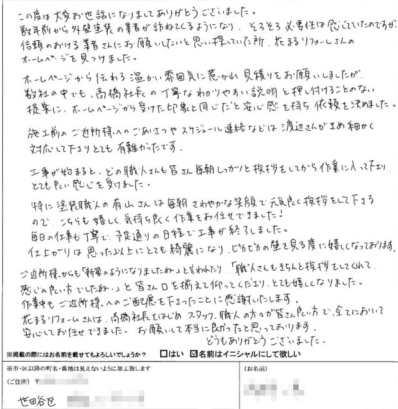 この度は大変お世話になりましてありがとうございました。
数年前から外壁塗装の業者が訪ねてくるようになり、そろそろ必要性は感じていたのですが、
信頼のおける業者さんにお願いしたいと思い探していた所、花まるリフォームさんの
ホームページを見つけました。
ホームページから伝わる温かい雰囲気に惹かれ見積りをお願いしましたが、
数社の中でも、高橋社長の丁寧なわかりやすい説明と押し付けることのない
提案に、ホームページから受けた印象と同じだと安心感を持ち依頼を決めました。
施工前のご近所様へのごあいさつやスケジュール連絡などは渡辺さんがまめ細かく
対応して下さりとても有難かったです。
工事が始まると、どの職人さんも皆さん毎朝しっかりと挨拶をしてから作業に入って下さり
とても良い感じを受けました。
特に塗装職人の有山さんは毎朝さわやかな笑顔で元気良く挨拶をして下さる
ので、こちらも嬉しく気持ち良く作業をお任せできました!
毎日の仕事も丁寧で、予定通りの日程で工事が終了しました。
仕上がりは思った以上にとても綺麗になり、ピカピカの壁を見る度に嬉しくなっております。
ご近所様からも「新築のようになりましたね」と言われたり、「職人さんもきちんと挨拶をしてくれて、
感じの良い方でしたね」と皆さん口を揃えて仰ってくださり、とても嬉しくなりました。
作業中もご近所様へのご配慮を下さったことに感謝いたします。
花まるリフォームさんは、高橋社長をはじめスタッフ、職人の方々が皆さん良い方で、全てにおいて
安心してお任せできました。お願いして本当に良かったと思っております。
どうもありがとうございました。
※掲載の際にはお名前を載せてもよろしいでしょうか? □はい ☑名前はイニシャルにして欲しい
※市・区以降の町名・番地は見えないように加工致します
(ご住所) 〒
(お名前)
世田谷区